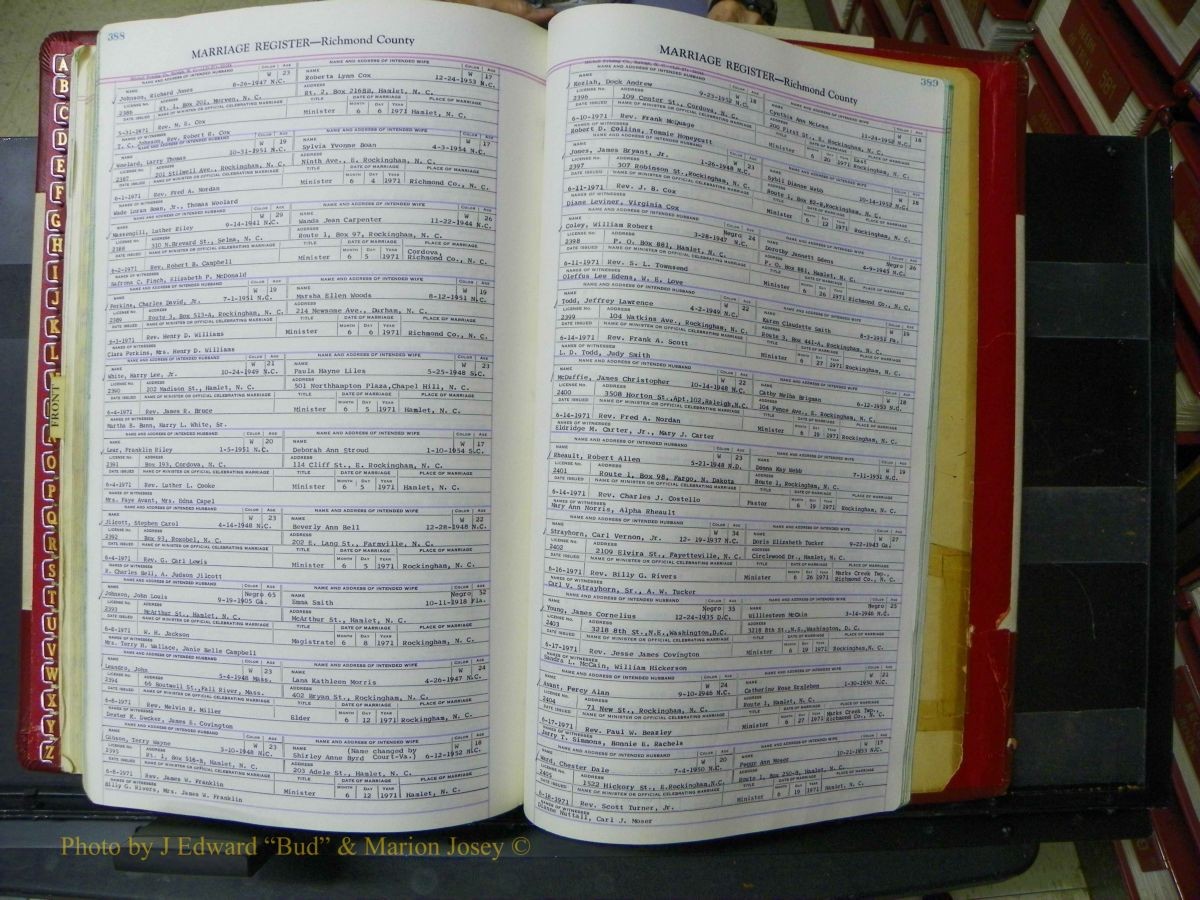 388
MARRIAGE REGISTER—Richmond County
NAME AND ADDRESS OF INTENDED HUSBAND COLOR AGE NAME AND ADDRESS OF INTENDED WIFE COLOR AGE
Johnson, Richard Jones 8-26-1947 N.C. W 23 Roberta Lynn Cox 12-24-1953 N.C. W 17
2386 Rt. 1, Box 202, Morven, N. C. Rt. 2, Box 216BB, Hamlet, N. C.
5-31-1971 Rev. N. E. Cox Minister 6 6 1971 Hamlet, N. C.
T. C. Johnson, Rev. Robert E. Cox
Woolard, Larry Thomas 10-31-1951 N.C. W 19 Sylvia Yvonne Boan 4-3-1954 N.C. W 17
2387 201 Stilwell Ave., Rockingham, N. C. Ninth Ave., E. Rockingham, N. C.
6-1-1971 Rev. Fred A. Nordan Minister 6 4 1971 Richmond Co., N. C.
Wade Loran Boan, Jr., Thomas Woolard
Massengill, Luther Riley 9-14-1941 N.C. W 29 Wanda Jean Carpenter 11-22-1944 N.C. W 26
2388 310 N.Brevard St., Selma, N. C. Route 1, Box 97, Rockingham, N. C.
6-2-1971 Rev. Robert B. Campbell Minister 6 5 1971 Cordova, Richmond Co., N. C.
Safrona C. Finch, Elizabeth P. McDonald
Perkins, Charles David, Jr. 7-1-1951 N.C. W 19 Marsha Ellen Woods 8-12-1951 N.C. W 19
2389 Route 3, Box 513-A, Rockingham, N. C. 214 Newsome Ave., Durham, N. C.
6-1-1971 Rev. Henry D. Williams Minister 6 6 1971 Richmond Co., N. C.
Clara Perkins, Mrs. Henry D. Williams
White, Harry Lee, Jr. 10-24-1949 N.C. W 21 Paula Hayne Liles 5-25-1948 S.C. W 23
2390 202 Madison St., Hamlet, N. C. 501 Northhampton Plaza,Chapel Hill, N. C.
6-4-1971 Rev. James R. Bruce Minister 6 5 1971 Hamlet, N. C.
Martha B. Bann, Harry L. White, Sr.
Lear, Franklin Riley 1-5-1951 N.C. W 20 Deborah Ann Stroud 1-10-1954 S.C. W 17
2391 Box 193, Cordova, N. C. 114 Cliff St., E. Rockingham, N. C.
6-4-1971 Rev. Luther L. Cooke Minister 6 5 1971 Hamlet, N. C.
Mrs. Faye Avant, Mrs. Edna Capel
Jilcott, Stephen Carol 4-14-1948 N.C. W 23 Beverly Ann Bell 12-28-1948 N.C. W 22
2392 Box 93, Roxobel, N. C. 202 E. Lang St., Farmville, N. C.
6-4-1971 Rev. G. Carl Lewis Minister 6 5 1971 Rockingham, N. C.
R. Charles Bell, A. Judson Jilcott
Johnson, John Louis 9-19-1905 Ga. Negro 65 Emma Smith 10-11-1918 Fla. Negro 52
2393 McArthur St., Hamlet, N. C. McArthur St., Hamlet, N. C.
6-8-1971 W. H. Jackson Magistrate 6 8 1971 Rockingham, N. C.
Mrs. Terry H. Wallace, Janie Belle Campbell
Leandre, John 5-4-1948 Mass. W 23 Lana Kathleen Morris 4-26-1947 N.C. W 24
2394 66 Boutwell St.,Fall River, Mass. 402 Bryan St., Rockingham, N. C.
6-8-1971 Rev. Melvin R. Miller Elder 6 12 1971 Rockingham, N. C.
Dexter K. Decker, James E. Covington
Gibson, Terry Wayne 5-10-1948 N.C. W 23 Shirley Anne Byrd (Name changed by Court-Va.) 6-12-1952 N.C. W 18
2395 Rt. 1, Box 516-B, Hamlet, N. C. 203 Adele St., Hamlet, N. C.
6-8-1971 Rev. James W. Franklin Minister 6 12 1971 Hamlet, N. C.
Billy G. Rivers, Mrs. James W. Franklin
389
MARRIAGE REGISTER—Richmond County
Keziah, Dock Andrew 9-23-1952 N.C. W 18 Cynthia Ann McLean 11-24-1952 N.C. W 18
2396 109 Center St., Cordova, N. C. 200 First St., E. Rockingham, N. C.
6-10-1971 Rev. Frank McQuage Minister 6 20 1971 East Rockingham, N. C.
Robert D. Collins, Tommie Honeycutt
Jones, James Bryant, Jr. 1-26-1948 N.C. W 21 Sybil Dianne Webb 10-14-1952 N.C. W 18
2397 307 Robinson St.,Rockingham, N. C. Route 1, Box 82-B,Rockingham, N. C.
6-11-1971 Rev. J. B. Cox Minister 6 12 1971 Rockingham, N. C.
Diane Leviner, Virginia Cox
Coley, William Robert 3-28-1947 N.C. Negro 24 Dorothy Jannett Edens 4-9-1945 N.C. Negro 26
2398 P. O. Box 881, Hamlet, N. C. P. O. Box 881, Hamlet, N. C.
6-11-1971 Rev. S. L. Townsend Minister 6 26 1971 Richmond Co., N. C.
Oleffus Lee Edens, W. E. Love
Todd, Jeffrey Lawrence 4-2-1949 N.C. W 22 Karen Claudette Smith 8-3-1951 Pa. W 19
2399 104 Watkins Ave., Rockingham, N. C. Route 3, Box 441-A, Rockingham, N. C.
6-14-1971 Rev. Frank A. Scott Minister 6 27 1971 Rockingham, N. C.
L. D. Todd, Judy Smith
McDuffie, James Christopher 10-14-1948 N.C. W 22 Cathy Melba Brigman 6-12-1953 N.C. W 18
2400 3508 Horton St.,Apt.102,Raleigh,N.C. 104 Pence Ave., E. Rockingham, N. C.
6-14-1971 Rev. Fred A. Nordan Minister 6 19 1971 Rockingham, N. C.
Eldridge M. Carter, Jr., Mary J. Carter
Rheault, Robert Allen 5-21-1948 N.D. W 23 Donna Kay Webb 7-11-1951 N.C. W 19
2401 Route 1, Box 98, Fargo, N. Dakota Route 1, Rockingham, N. C.
6-14-1971 Rev. Charles J. Costello Pastor 6 19 1971 Rockingham, N. C.
Mary Ann Norris, Alpha Rheault
Strayhorn, Carl Vernon, Jr. 12-19-1937 N.C. W 34 Doris Elizabeth Tucker 9-22-1943 Ga. W 27
2402 2109 Elvira St., Fayetteville, N. C. Circlewood Dr., Hamlet, N. C.
6-16-1971 Rev. Billy G. Rivers Minister 6 26 1971 Marks Creek Twp., Richmond Co., N. C.
Carl V. Strayhorn, Sr., A. W. Tucker
Young, James Cornelius 12-24-1935 D.C. Negro 35 Williesteen McCain 3-14-1946 N.C. Negro 25
2403 3218 8th St.,N.E.,Washington,D.C. 3218 8th St.,N.E.,Washington, D. C.
6-17-1971 Rev. Jesse James Covington Minister 6 19 1971 Rockingham,N.C.
Sandra L. McCain, William Hickerson
Avant, Percy Alan 9-10-1946 N.C. W 24 Catherine Rose Ezgleben 1-30-1950 N.C. W 21
2404 71 New St., Rockingham, N. C. Route 1, Hamlet, N. C.
6-17-1971 Rev. Paul W. Beazley Minister 6 27 1971 Marks Creek Twp., Richmond Co., N. C.
Jerry T. Simmons, Bonnie E. Rachels
Ward, Chester Dale 7-4-1950 N.C. W 20 Peggy Ann Moser 10-21-1953 N.C. W 17
2405 1522 Hickory St., E.Rockingham,N.C. Route 1, Box 250-B, Hamlet, N. C.
6-18-1971 Rev. Scott Turner, Jr. Minister 6 19 1971 Hamlet, N. C.
Dianne Nuttall, Carl J. Moser
A
B
C
D
E
F
G
H
I
J
K
L
FRONT
O
P
Q
R
S
T
U
V
W
X
Y
Z
Photo by J Edward “Bud” & Marion Josey ©